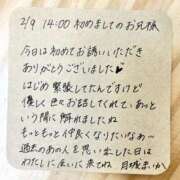 2/9 14:00 初めましてのお兄様
今日は初めてお誘いいただき
ありがとうございました♥
はじめ緊張してたんですけど
優しく色々お話してくれて、あっと
いう間に隙れましたね
もっともっと仲良くなりたいなぁ〜
過去のあの人を思い出した日は
わたしに会いに来てね